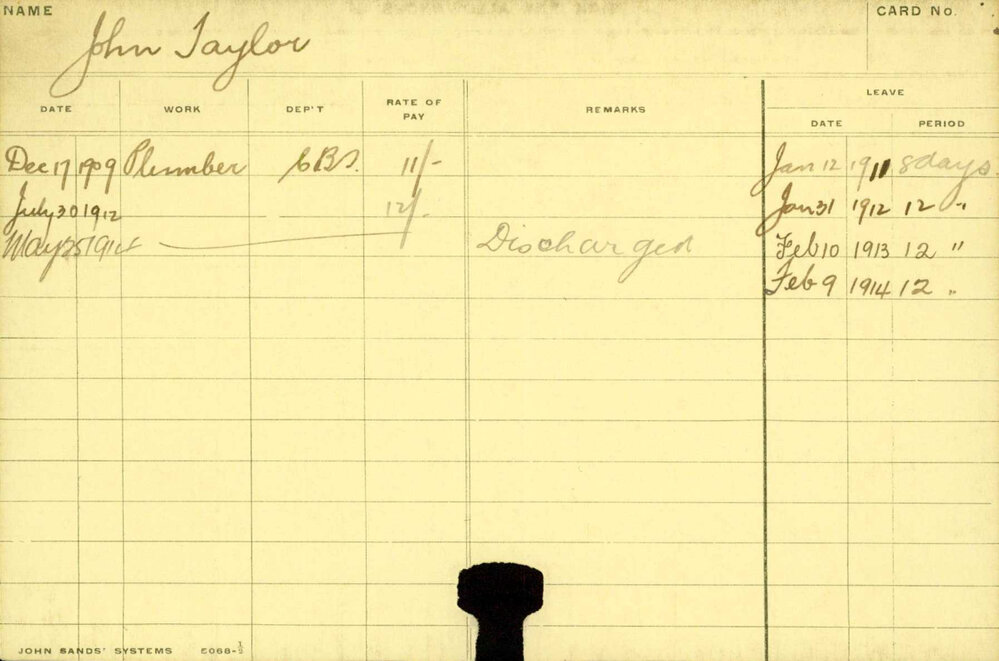 NAME CARD No.
John Taylor
LEAVE
DATE WORK DEP'T RATE OF PAY REMARKS DATE PERIOD
Dec 17 1909 Plumber C.B.S. 11/- Jan 12 1911 8 days.
July 30 1912 12/- Jan 31 1912 12 "
May 25 1914 Discharged Feb 10 1913 12 "
Feb 9 1914 12 "
JOHN SANDS' SYSTEMS 5068-½